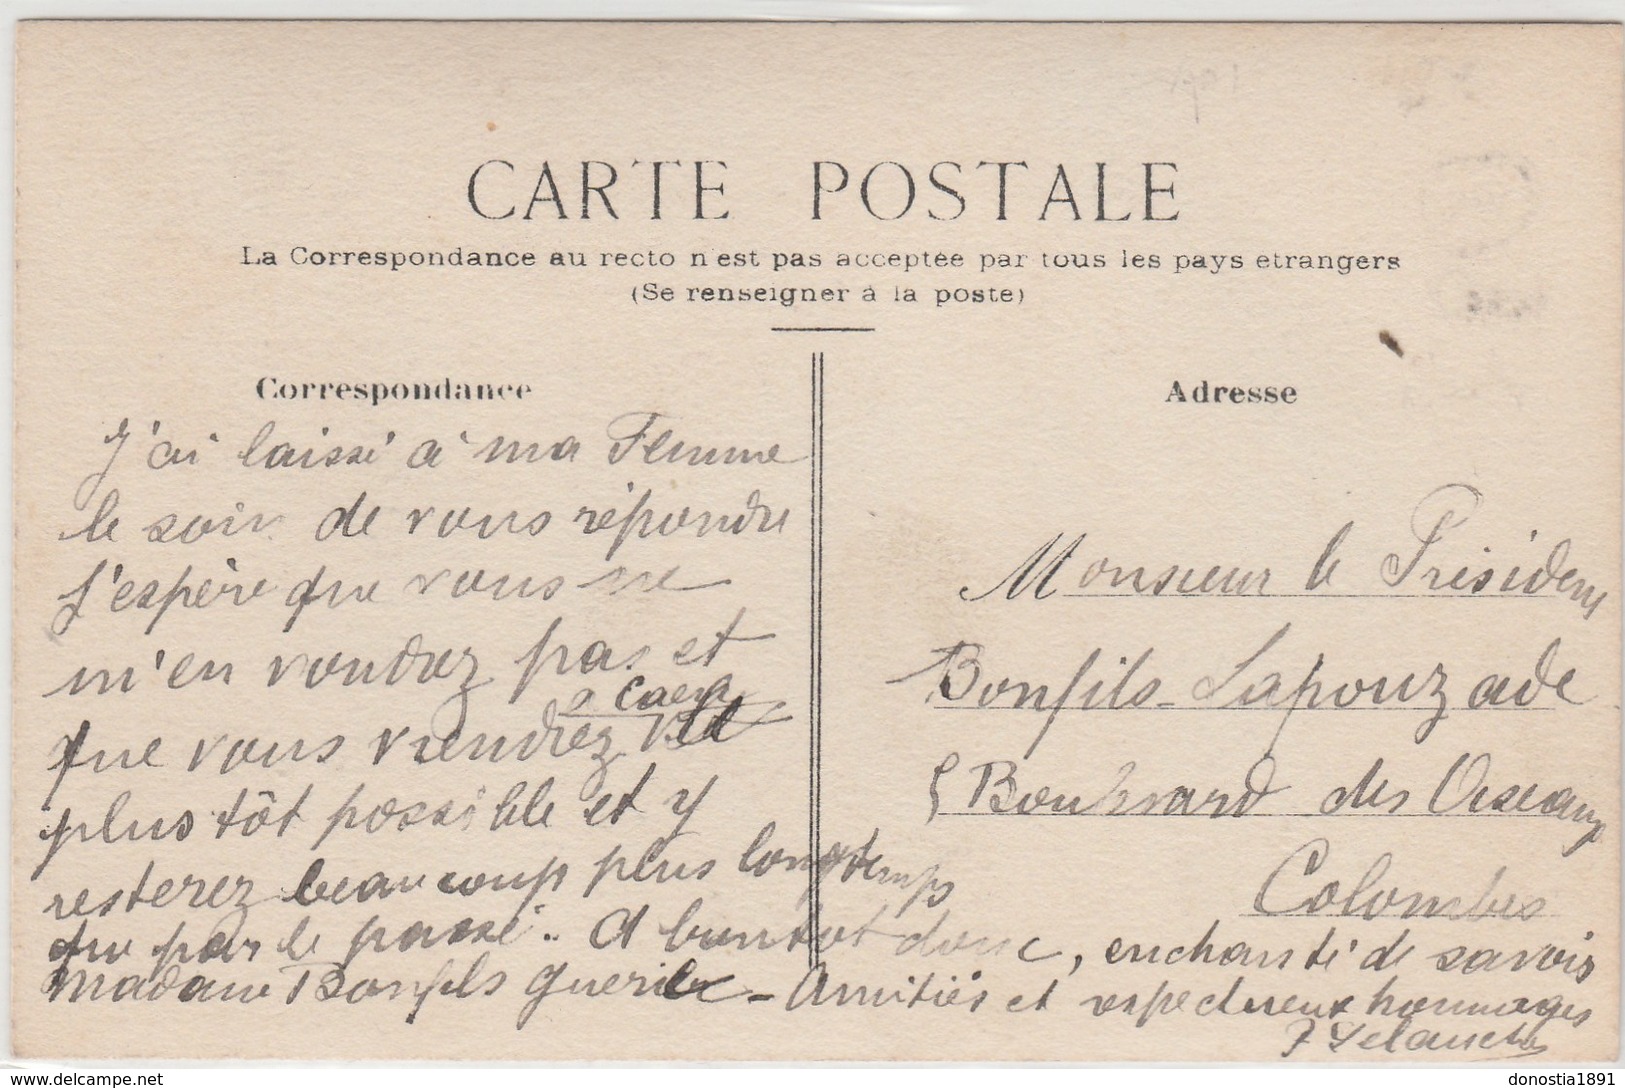 CARTE POSTALE
La Correspondance au recto n'est pas acceptée par tous les pays etrangers
(Se renseigner à la poste)
Correspondance
J'ai laissé à ma Femme
le soin de vous répondre
J'espère que vous ne
m'en voudrez pas et
à Caen
que vous viendrez
plus tôt possible et y
resterez beaucoup plus longtemps
que par le passé. A bientot donc, enchanté de savoir
Madame Bonfils guerie - Amitiés et respectueux hommages
Adresse
Monsieur le Président
Bonfils-Lapouzade
5 Boulevard des Oiseaux
Colombes
delcampe.net
donostia1891